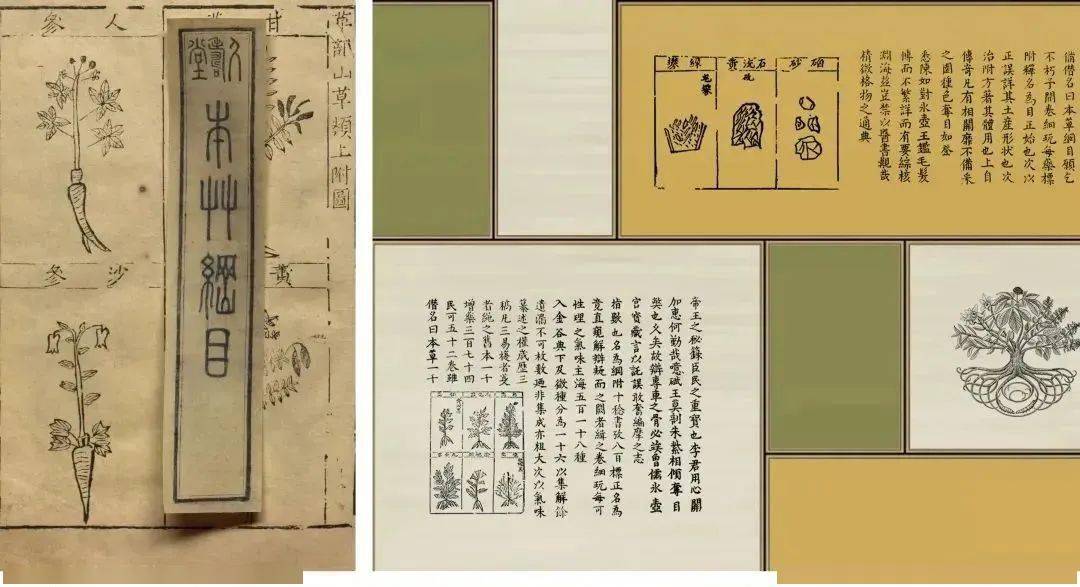 草部山草類上附圖
甘
人參
黃
沙參
久壽堂
本艸綱目
僭名曰本草綱目願乞
不朽子開卷細玩每藥標
附釋名為目正始也次以
正誤詳其土產形狀也次
治附方著其體用也上自
傳奇凡有相關靡不備采
之園種色奪目如登
悉陳如對氷壺玉鑑毛髮
博而不繁詳而有要綜核
淵海茲豈禁以醫書觀哉
精微格物之通典
硇砂
石流黃
綠礬
帝王之秘錄臣民之重寶也李君用心開
加惠何勤哉噫碔玉莫剖朱紫相傾奪目
弊也久矣故辯專車之骨必竢魯儒氷壺
宮寶藏言以託誤敢套編摩之志
指數也名為綱附十稔書攷八百標正名為
竟直窺解辯疑而之闕者緝之卷細玩每可
性理之氣味主海五百一十八種
入金谷典下及微種分為一十六以集解餘
遺漏不可枚數迺非集成亦粗大次以氣味
纂述之權歲歷三
稿凡三易複者芟
者繩之舊本一十
增藥三百七十四
民可五十二卷雖
僭名曰本草一十